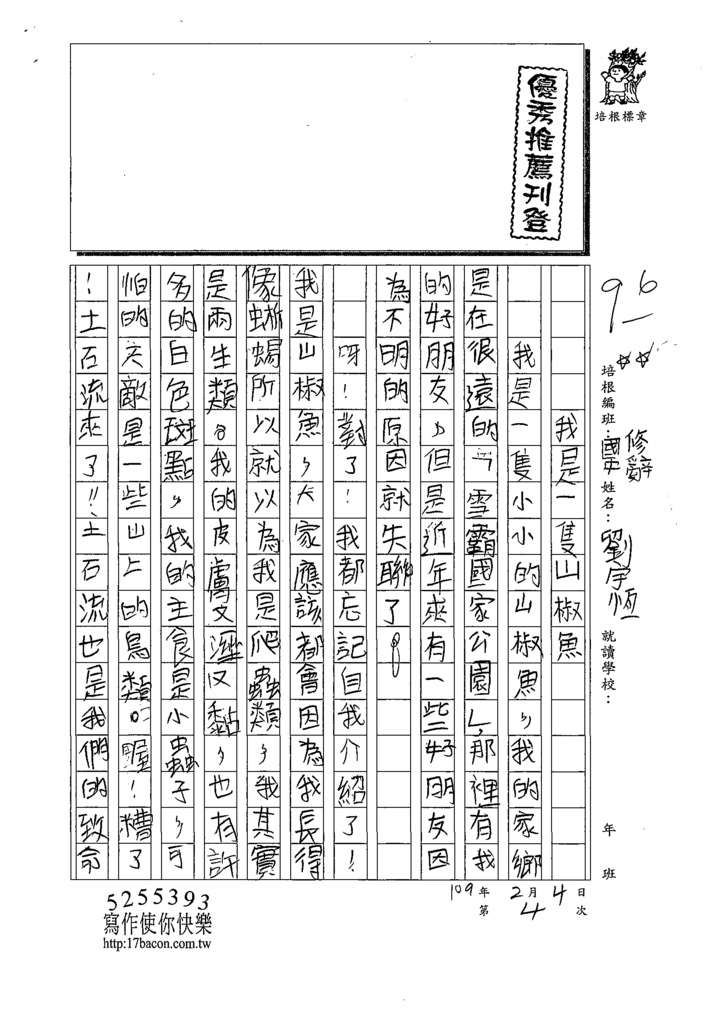 優秀推薦刊登
培根標章
96
培根編班：國中修辭 姓名：劉宇恆 就讀學校： 年 班
109年2月4日
第4次
我是一隻山椒魚
我是一隻小小的山椒魚，我的家鄉
是在很遠的「雪霸國家公園」，那裡有我
的好朋友，但是近年來有一些好朋友因
為不明的原因就失聯了。
呀！對了！我都忘記自我介紹了！
我是山椒魚，大家應該都會因為我長得
像蜥蜴所以就以為我是爬蟲類，我其實
是兩生類。我的皮膚又溼又黏，也有許
多的白色斑點，我的主食是小蟲子，可
怕的天敵是一些山上的鳥類。喔！糟了
！土石流來了！！土石流也是我們的致命
5255393
寫作使你快樂
http:17bacon.com.tw